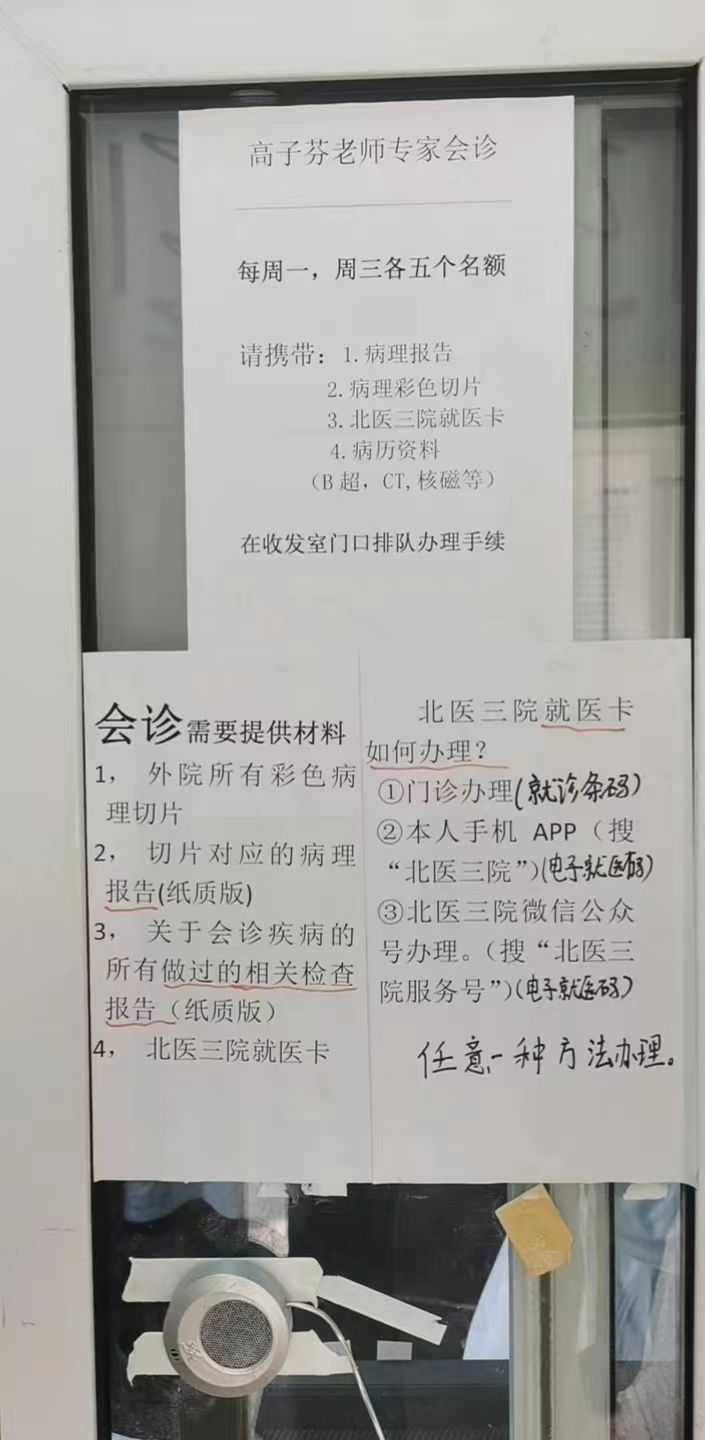 高子芬老师专家会诊
每周一，周三各五个名额
请携带：1.病理报告
2.病理彩色切片
3.北医三院就医卡
4.病历资料
（B超，CT,核磁等）
在收发室门口排队办理手续
会诊需要提供材料
1， 外院所有彩色病
理切片
2， 切片对应的病理
报告(纸质版)
3， 关于会诊疾病的
所有做过的相关检查
报告（纸质版）
4， 北医三院就医卡
北医三院就医卡
如何办理？
①门诊办理(就诊条码)
②本人手机 APP（搜
“北医三院”)(电子就医码)
③北医三院微信公众
号办理。（搜“北医三
院服务号”)(电子就医码)
任意一种方法办理。